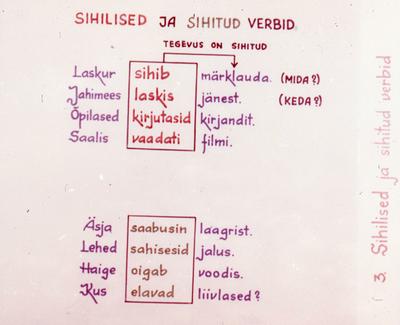 SIHILISED JA SIHITUD VERBID
TEGEVUS ON SIHITUD
Laskur sihib märklauda. (MIDA?)
Jahimees laskis jänest. (KEDA?)
Õpilased kirjutasid kirjandit.
Saalis vaadati filmi.
Äsja saabusin laagrist.
Lehed sahisesid jalus.
Haige oigab voodis.
Kus elavad liivlased?
3. Sihilised ja sihitud verbid